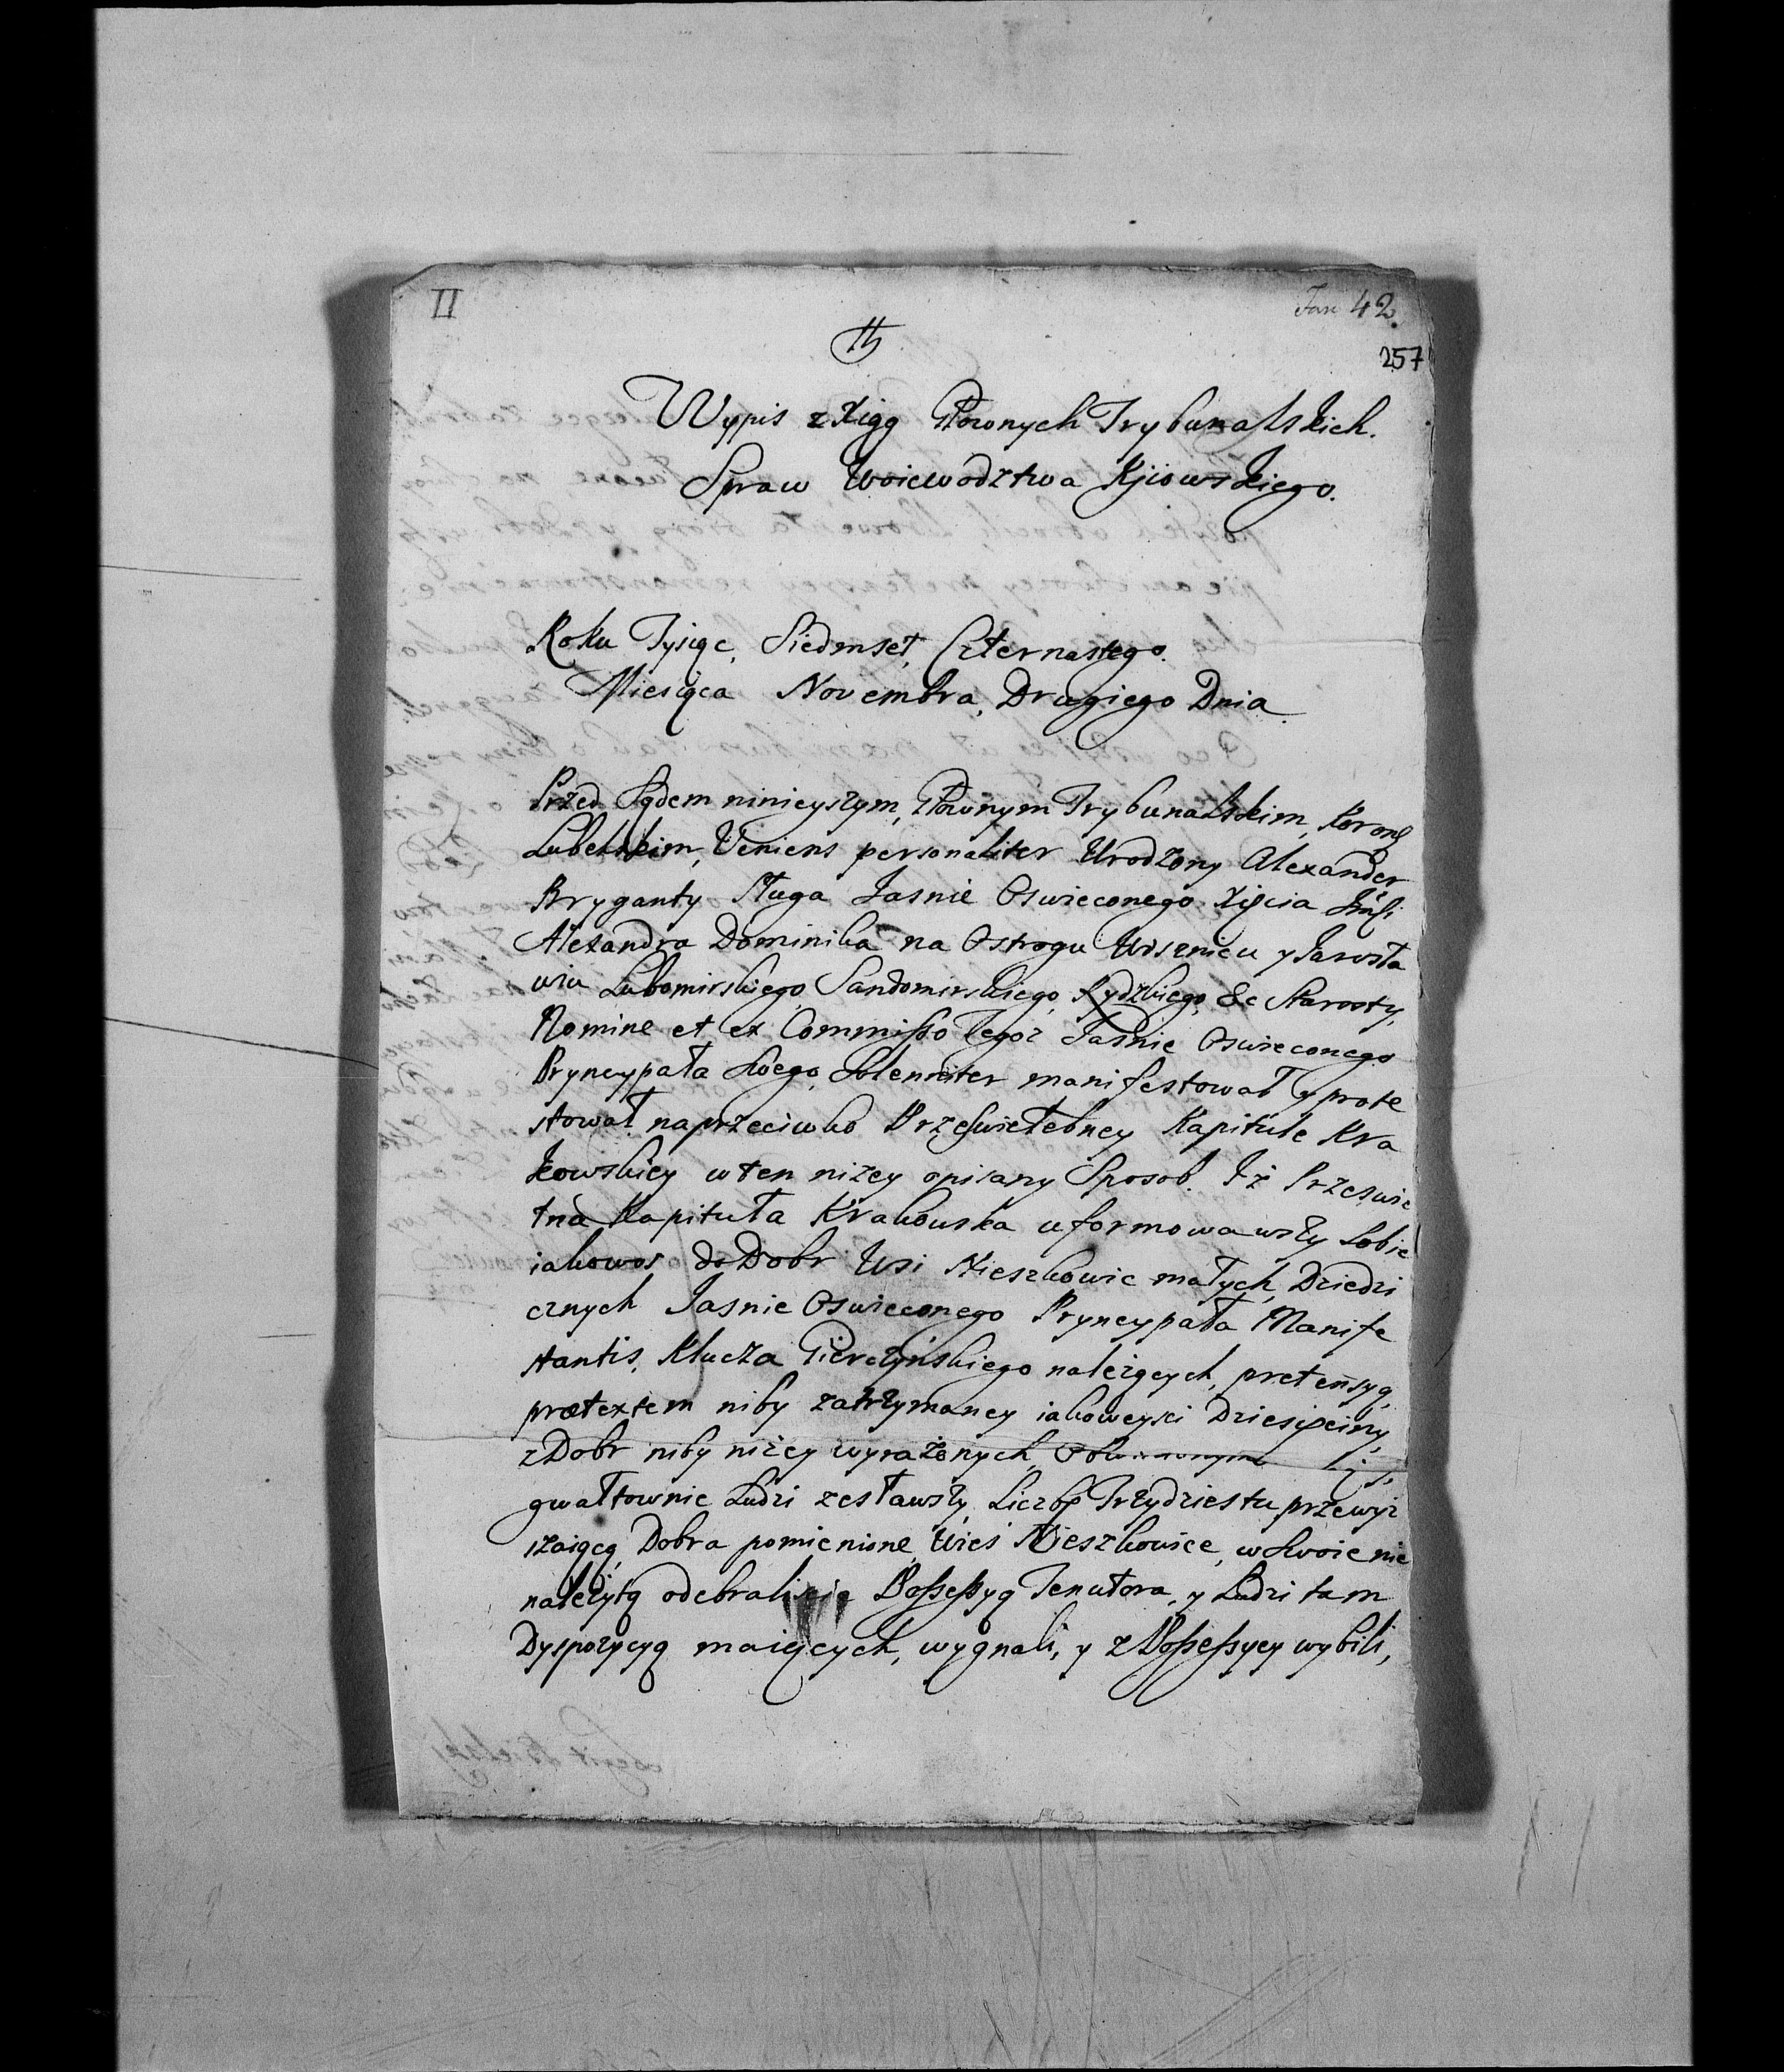 II
Fan 42.
257
Wypis z Xiąg Głownych Trybunalskich.
Spraw Woiewodztwa Kijowskiego.
Roku Tysiąc, Siedmset, Czternastego.
Miesiąca Novembra, Drugiego Dnia
Przed Sądem ninieyszym, Głownym Trybunalskim, Koron̄
Lubelskim, Veniens personaliter Urodzony Alexander
Bryganty Sługa Jasnie Oswieconego Xięcia Jmści
Alexandra Dominika na Ostrogu Wisznicu y Jarosła
wiu Lubomirskiego Sandomirskiego, Ryczkiego, &c Starosty,
Nomine et ex Commisso Tegoz Jasnie Oswieconego
Pryncypała Swego, Solenniter manifestował y prote
stował naprzeciwko Przeswietebney Kapitule Kra
kowskiey w ten nizey opisany Sposob. Iż Przeswie
tna Kapituła Krakowska uformowawszy Sobie
iakowos do Dobr Wsi Nieszkowic małych, Dziedzi
cznych Jasnie Oswieconego Pryncypała Manife
stantis, Klucza Gierczyńskiego należących, pretensyą,
prætextem niby zatrzymaney iakoweysci Dziesięciny,
z Dobr niby niżey wyrażonych,
gwałtownie Ludzi zesławszy, Liczbę Trzydziestu przewyż
szaiącą, Dobra pomienione Wieś Nieszkowice, w Swoie nie
należytą odebrali Possessyą Tenutora, y Ludzi tam
Dyspozycyą maiących, wygnali, y z Possessyey wybili,